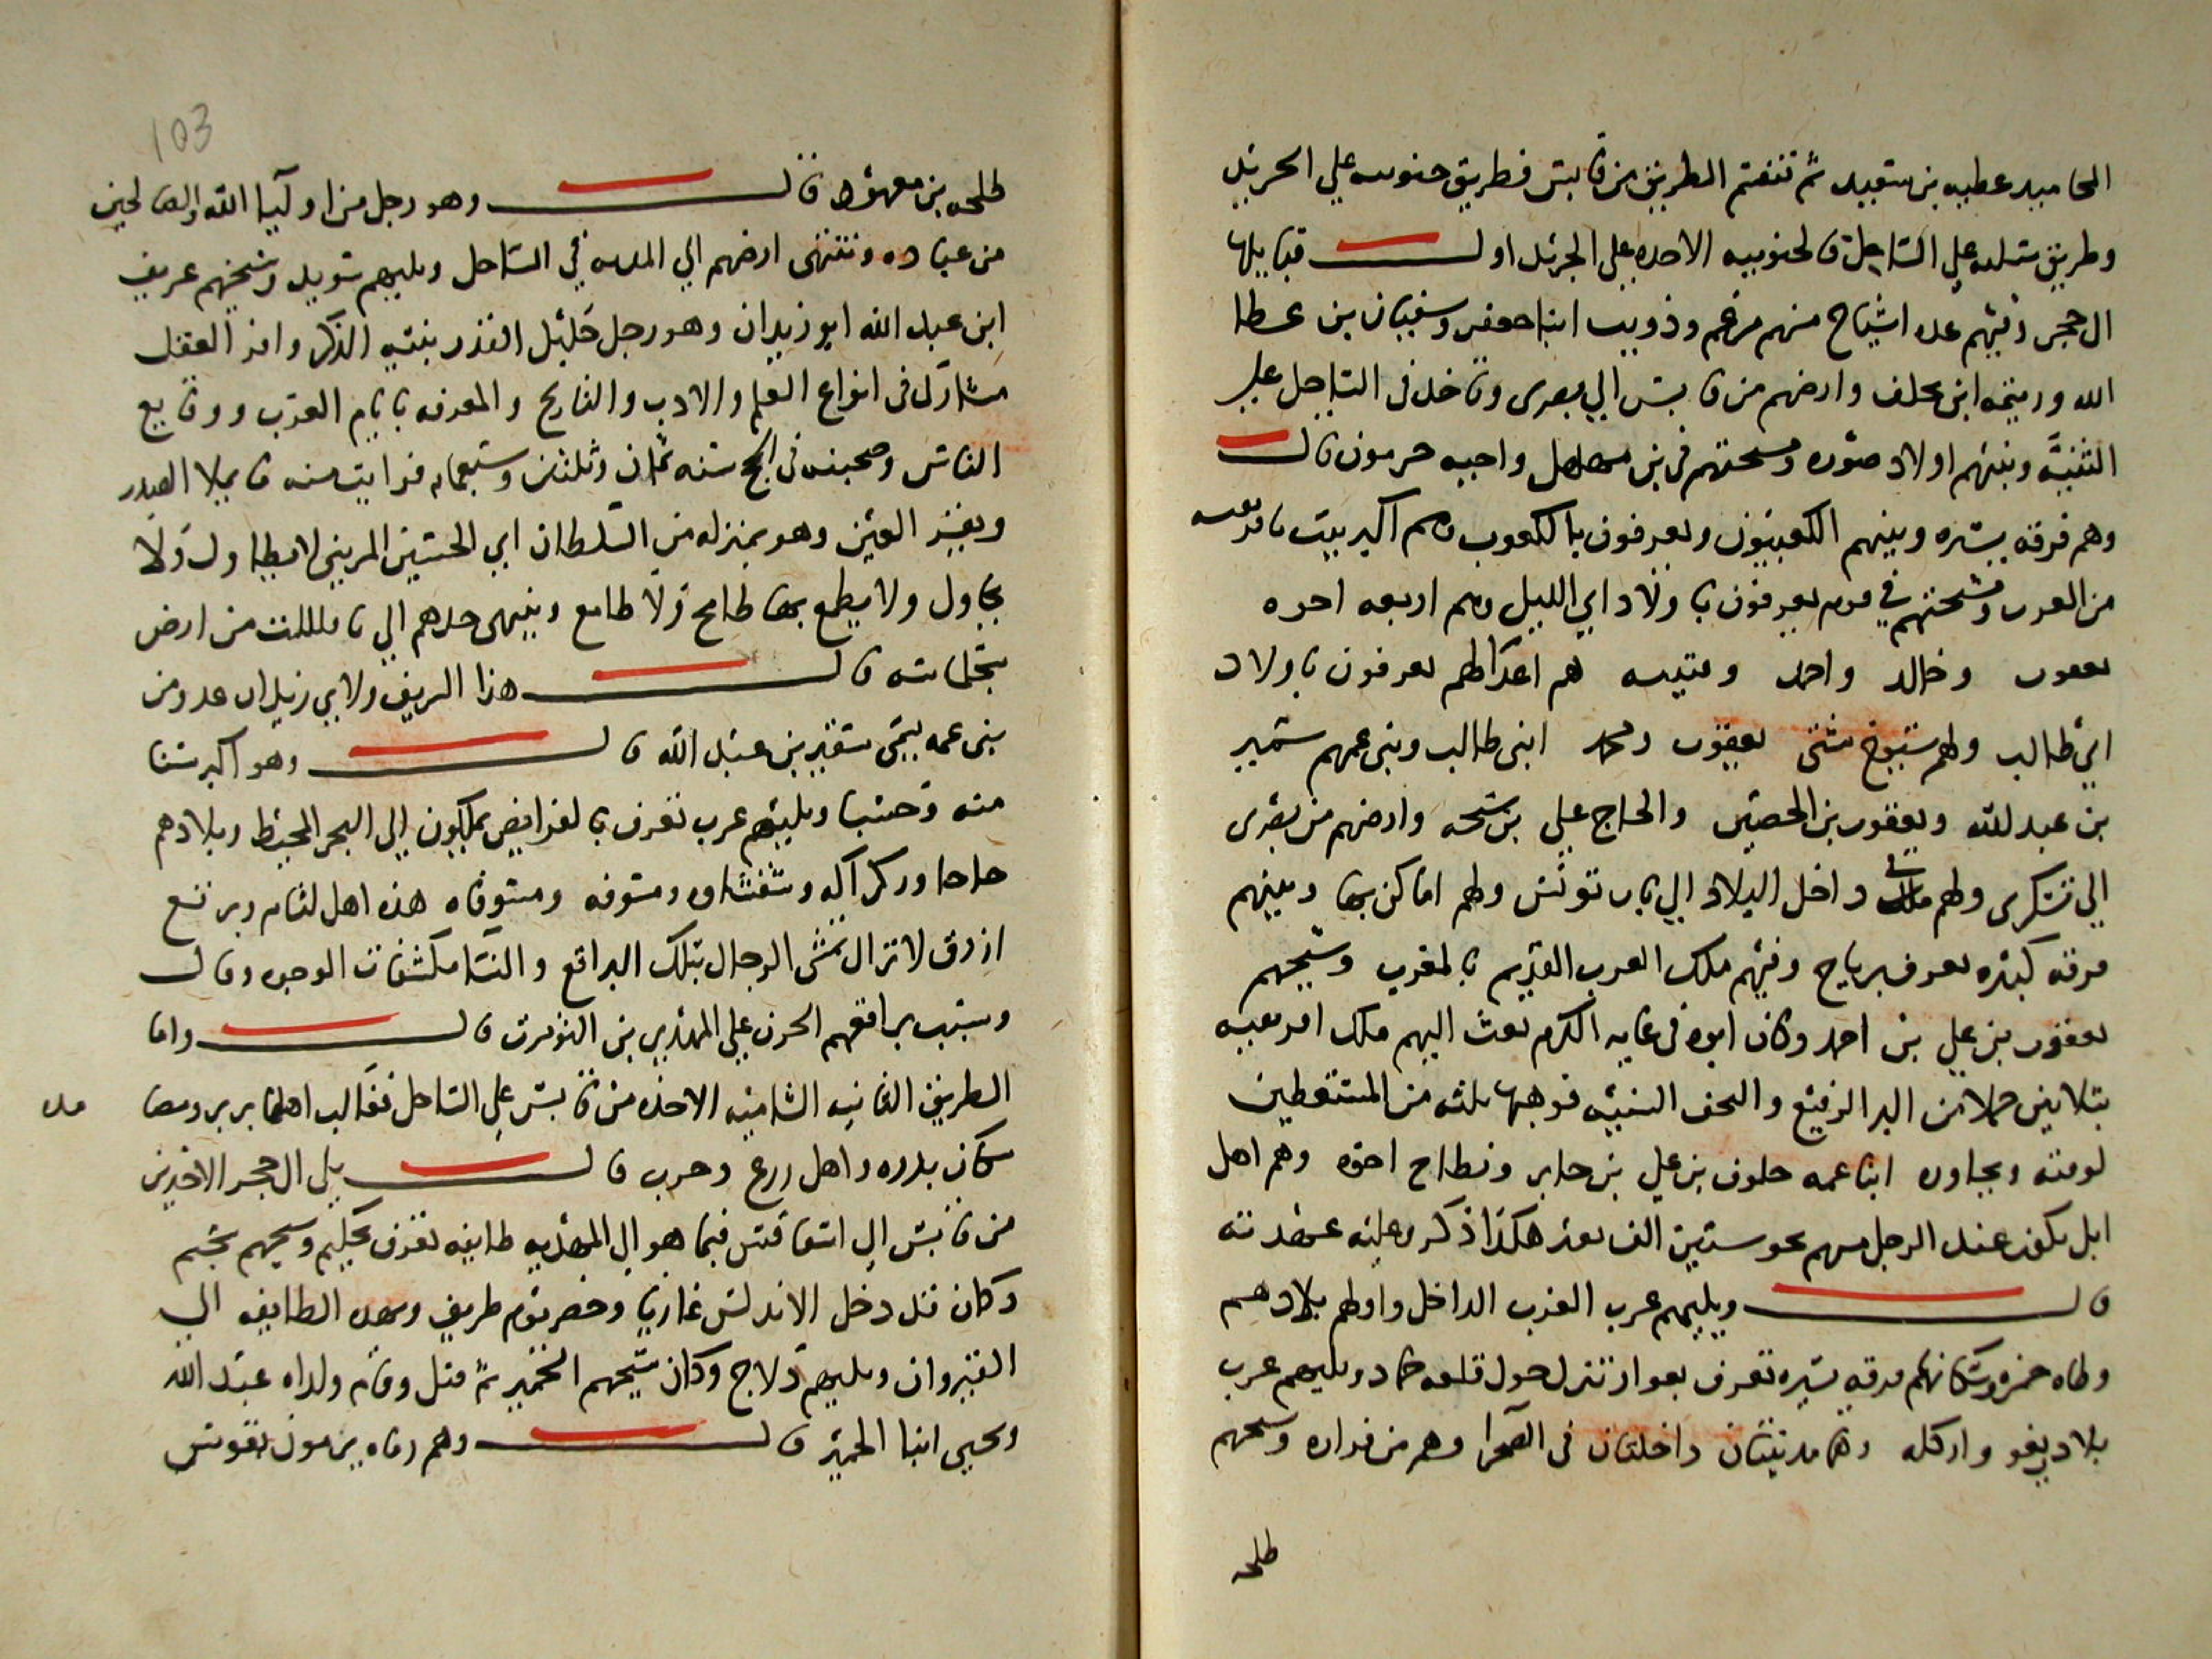 المحاميد عطيه بن سعيد ثم تنقسم الطريق من قابس فطريق جنوبيه علي الجريد
وطريق شاميه علي الساحل فالجنوبيه الاخده علي الجريد اول قبايلها
ال حجر وفيهم عده اشياخ منهم مرغم وذويب ابنا جعفر وسفيان بن عطا
الله ورميثه ابن مخلف وارضهم من قابس الي بصرى وتاخذ في الساحل علي
الثنية وبينهم اولاد صوره ومشيختهم في بن مهلهل واخيه حرمون قال
وهم فرقه يسيره وبينهم الكعبيون ويعرفون بالكعوب وهم اكبر بيت بافريقيه
من العرب ومشيختهم في قوم يعرفون باولاد ابي الليل وهم اربعه اخوه
يعقوب وخالد واحمد وقتيبه هم اعداظهم يعرفون باولاد
ابي طالب ولهم شيوخ مثنى يعقوب ومحمد ابنى طالب وبنى عمهم سمير
بن عبد لله ويعقوب بن الحصين والحاج علي بن شيحه وارضهم من بصرى
الي تسكرى ولهم ملك في داخل البلاد الي باب تونس ولهم اماكن بها وبينهم
فرقه كبيره تعرف برياح وفيهم ملك العرب القديم بالمغرب وشيخهم
يعقوب بن علي بن احمد وكان ابوه في غايه الكرم بعث اليهم ملك افريقيه
بثلاثين حملا من البر الرفيع والتحف السنيه فوهبها ثلثه من المستعطين
لوقته ويجاوره ابنا عمه خلوف بن علي بن جابر ونطاح اخوه وهم اهل
ابل يكون عند الرجل منهم نحو ستين الف بعير هكذا ذكر وعليه عهدته
قال ويليهم عرب الغرب الداخل واولهم بلادهم
وطاه حمزه وسكانهم فرقه يسيره تعرف بعوار تنزل حول قلعه حماد ويليهم عرب
بلاد ريغو واركله وهما مدينتان داخلتان في الصحرا وهم من فزاره وشيخهم
طلحه
103
طلحه بن معهود قال وهو رجل من اوليا الله والصالحين
من عباده وتنتهى ارضهم الي المديه في الساحل ويليهم سويد وشيخهم عريف
ابن عبد الله ابو زيدان وهو رجل جليل القدر نبيه الذكر وافر العقل
مشارك فى انواع العلم والادب والتاريخ والمعرفه بايام العرب ووقايع
الناس وصحبته في الحج سنه ثمان وثلثين وسبعمايه فرايت منه ما يملا الصدر
ويقر العين وهو بمنزله من السلطان ابي الحسين المريني لا يطاول ولا
يحاول ولا يطمع بها طامح ولا طامع وينتهى حدهم الي تامللت من ارض
سجلماسه قال هذا الريف ولابي زيدان عدو من
بنى عمه يسمى سقير بن عبد الله قال وهو اكبر سنا
منه وحسبا ويليهم عرب تعرف بالغرايض يملكون الي البحر المحيط وبلادهم
حاحا وركراكه وشفشاوه ومسوفه ومستوفاه هذه اهل لثام وبرانع
ازرق لا تزال تمشى الرجال بتلك البراقع والنسا مكشفات الوجوه وقال
وسبب براقعهم الحزن علي المهدي بن التومرت قال واما
الطريق الثانيه الشاميه الاخذه من قابس علي الساحل فغالب اهلها بربر وبها مده
سكان بدو وهم اهل زرع وحرب قال يلي ال حجر الاخذين
من قابس الي اسفاقس فيما هو الي المهديه طايفه تعرف بحكيم وشيخهم سحيم
وكان قد دخل الاندلس غازيا وحضر يوم طريف وبهذه الطايفه الي
القيروان ويليهم دلاج وكان شيخهم الحمير ثم قتل وقام ولداه عبد الله
ويحيى ابنا الحمير قال وهم رماه يرمون بقوس